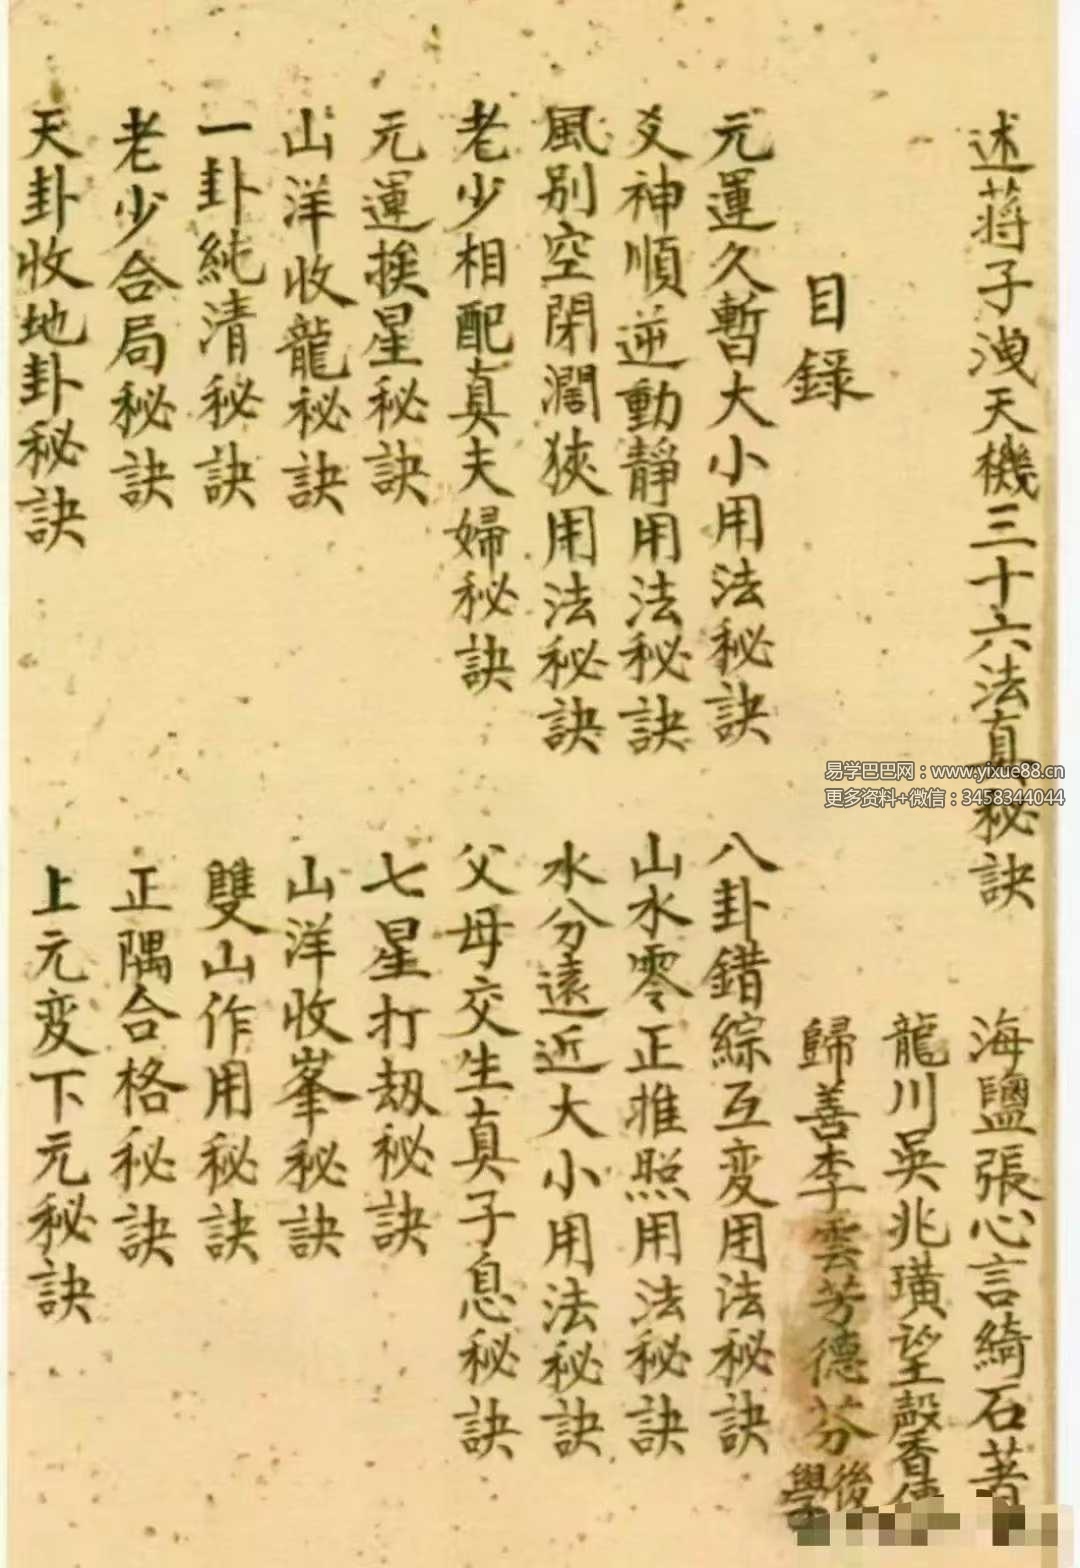 述蒋子洩天機三十六法真秘訣
海鹽張心言綺石著
龍川吳兆璜望縠香傳
目録
歸善李雲芳德芬後學
元運久暫大小用法秘訣
八卦錯綜互变用法秘訣
爻神順逆動靜用法秘訣
山水零正推照用法秘訣
風别空閉濶狹用法秘訣
水分遠近大小用法秘訣
老少相配真夫婦秘訣
父母交生真子息秘訣
元運挨星秘訣
七星打刼秘訣
山洋收龍秘訣
山洋收峯秘訣
一卦純清秘訣
雙山作用秘訣
老少合局秘訣
正隅合格秘訣
天卦收地卦秘訣
上元变下元秘訣
易学巴巴网：www.yixue88.cn
更多资料+微信：3458344044